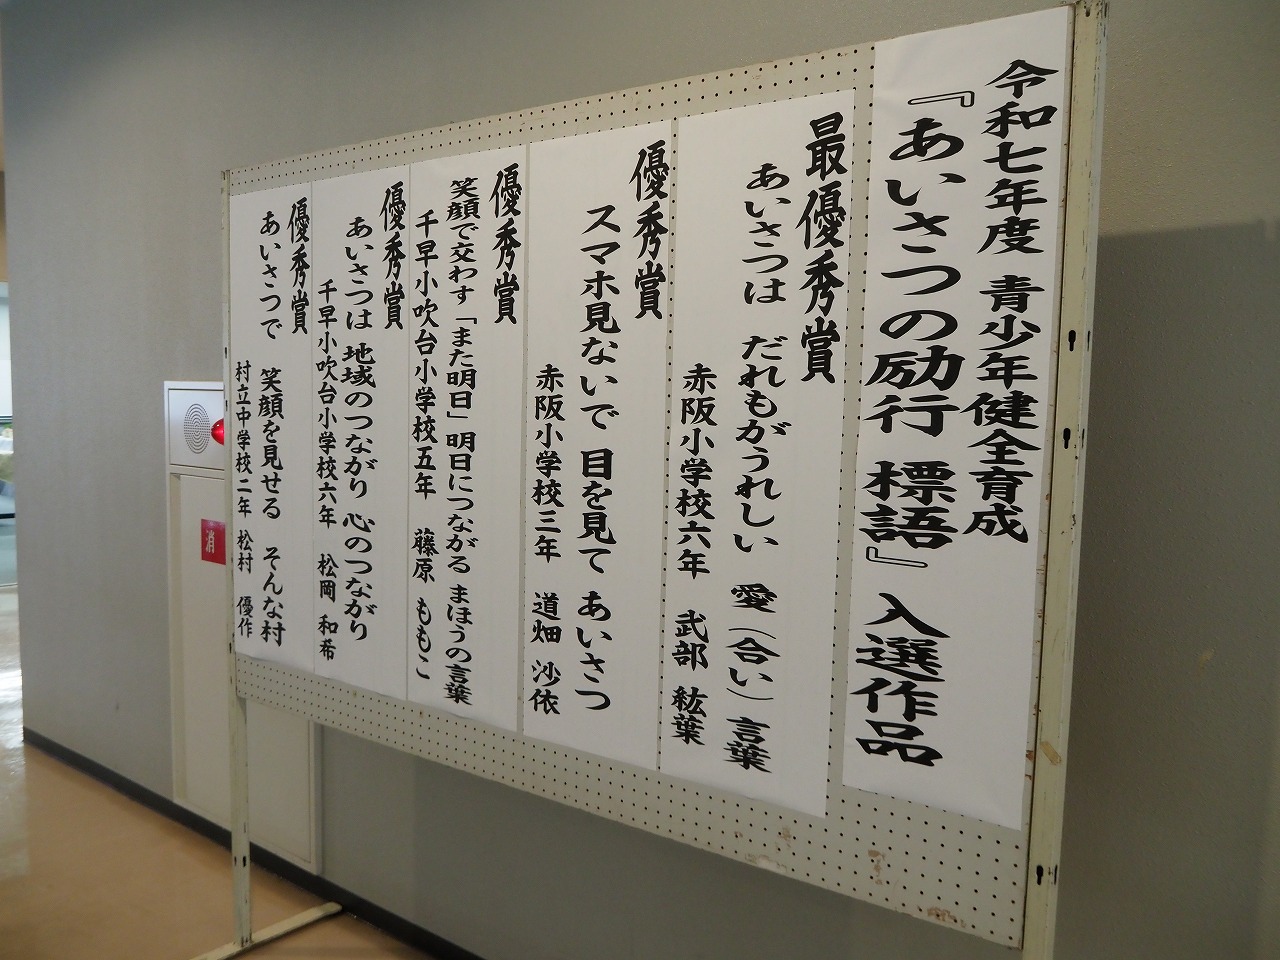 令和七年度 青少年健全育成
『あいさつの励行 標語』 入選作品
最優秀賞
あいさつは だれもがうれしい 愛（合い）言葉
赤阪小学校六年 武部 紘葉
優秀賞
スマホ見ないで 目を見て あいさつ
赤阪小学校三年 道畑 沙依
優秀賞
笑顔で交わす「また明日」明日につながる まほうの言葉
千早小吹台小学校五年 藤原 ももこ
優秀賞
あいさつは 地域のつながり 心のつながり
千早小吹台小学校六年 松岡 和希
優秀賞
あいさつで 笑顔を見せる そんな村
村立中学校二年 松村 優作
消